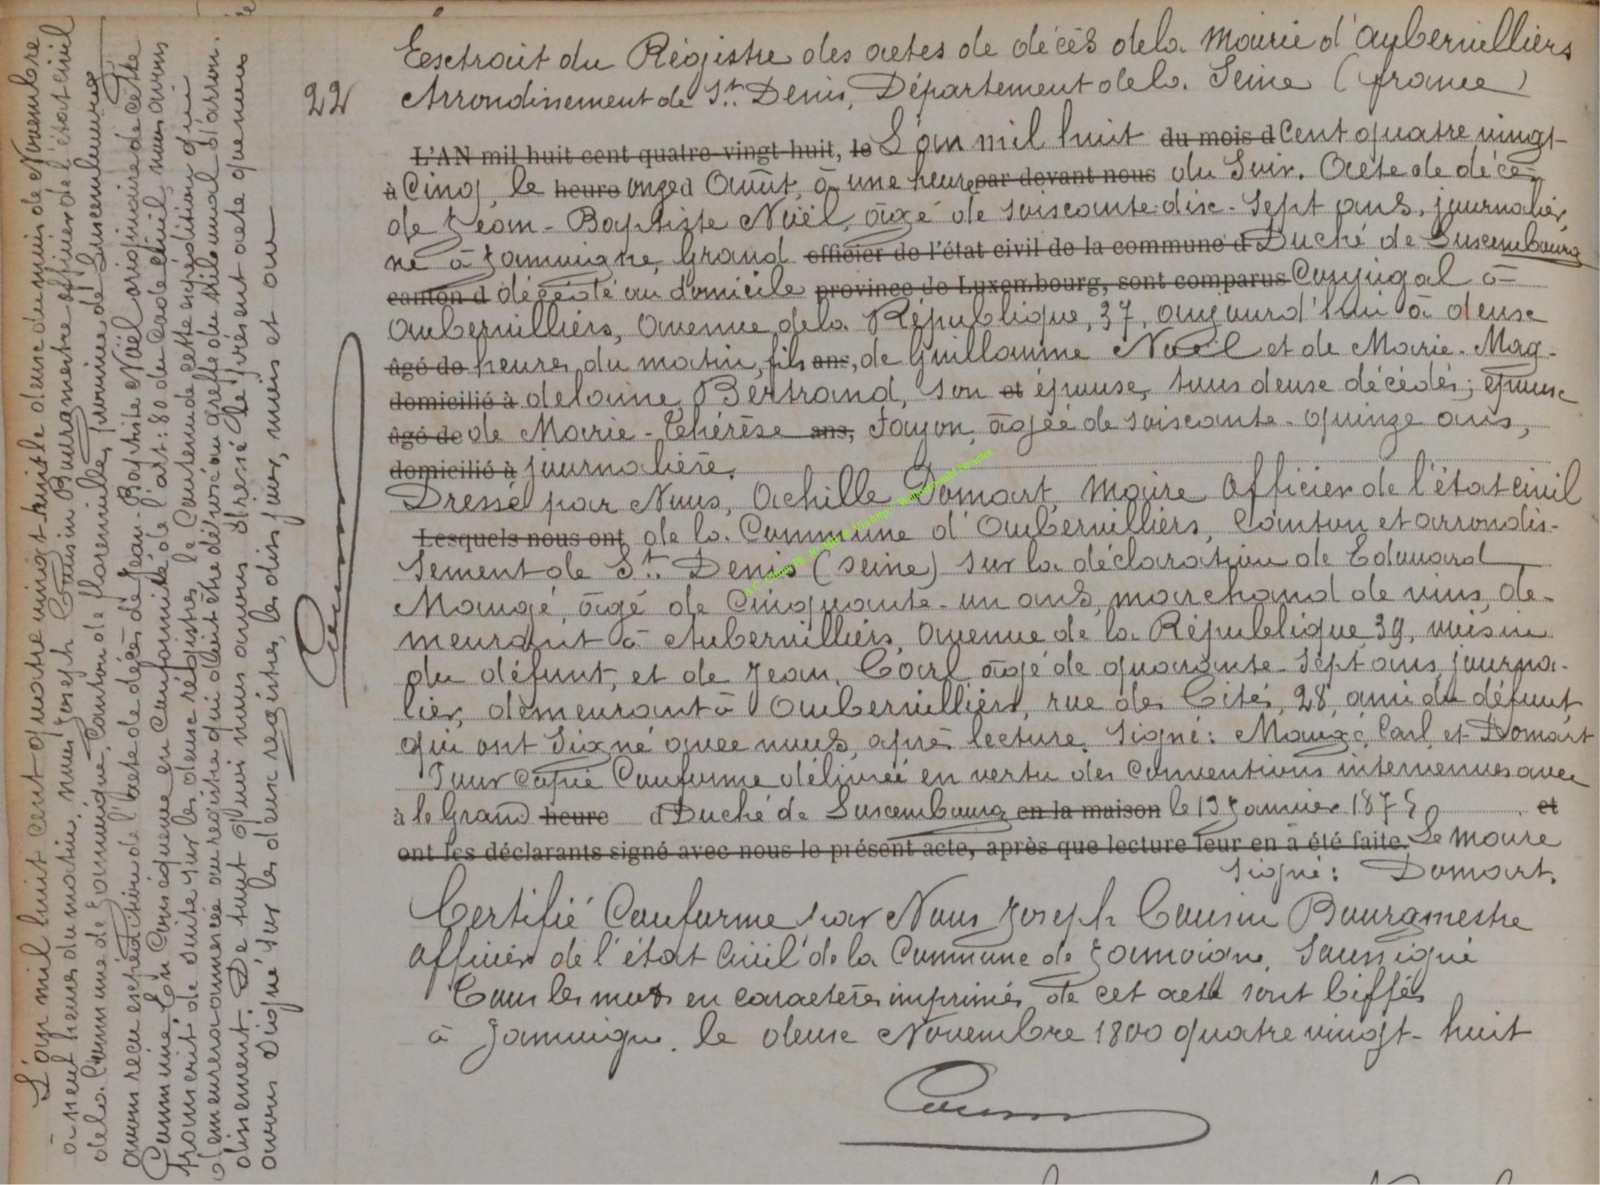 L'an mil huit cent quatre vingt huit le deux du mois de Novembre
à neuf heures du matin, nous Joseph Cousin Bourgmestre officier de l'état civil
de la Commune de Jamoigne, Canton de Florenville, province de Luxembourg
avons reçu expédition de l'acte de décès de Jean Baptiste Noël originaire de cette
Commune. En Conséquence en Conformité de l'art: 80 du Code Civil, nous avons
transcrit de suite sur les deux régistres, le Contenu de cette expédition qui
demeurera annexée au registre qui doit être déposé au greffe du tribunal d'arron-
dissement. De tout quoi nous avons dressé le présent acte que nous
avons signé sur les deux registres, les dits jour, mois et an
Cousin
22
Extrait du Régistre des actes de décès de la Mairie d'Aubervilliers
Arrondissement de St. Denis, Département de la Seine (france)
L'AN mil huit cent quatre-vingt-huit, le L'an mil huit du mois d Cent quatre vingt-
à Cinq, le heure onze d Août, à une heure par devant nous du Soir. Acte de décès
de Jean-Baptiste Noël, âgé de soixante-dix-sept ans, journalier,
né à Jamoigne, Grand officier de l'état civil de la commune d Duché de Luxembourg
canton d décédé au domicile province de Luxembourg, sont comparus Conjugal à
Aubervilliers, Avenue de la République, 37, aujourd'hui à deux
âgé de heures du matin, fils ans, de Guillaume Noël et de Marie-Mag-
domicilié à delaine Bertrand, son et épouse, tous deux décédés; époux
âgé de de Marie-Thérèse ans, Fayon, âgée de soixante-quinze ans,
domicilié à journalière.
Dressé par Nous, Achille Domart, Maire Officier de l'état civil
Lesquels nous ont de la Commune d'Aubervilliers, Canton et arrondis-
sement de St. Denis (Seine) sur la déclaration de Edouard
Maugé, âgé de Cinquante-un ans, marchand de vins, de-
meurant à Aubervilliers, Avenue de la République, 39, voisin
du défunt, et de Jean, Carl, âgé de quarante-sept ans, journa-
lier, demeurant à Aubervilliers, rue des Cités, 28, ami du défunt
qui ont signé avec nous, après lecture. Signé: Maugé, Carl, et Domart
Pour copie Conforme délivrée en vertu des Conventions intervenues avec
à le Grand heure d Duché de Luxembourg en la maison le 19 Janvier 1875 et
ont les déclarants signé avec nous le présent acte, après que lecture leur en a été faite. Le Maire
Signé: Domart.
Certifié Conforme par Nous Joseph Cousin Bourgmestre
Officier de l'état Civil de la Commune de Jamoigne, Soussigné
Tous les mots en caractères imprimés de cet acte sont biffés
à Jamoigne, le deux Novembre 1800 quatre vingt-huit
Cousin